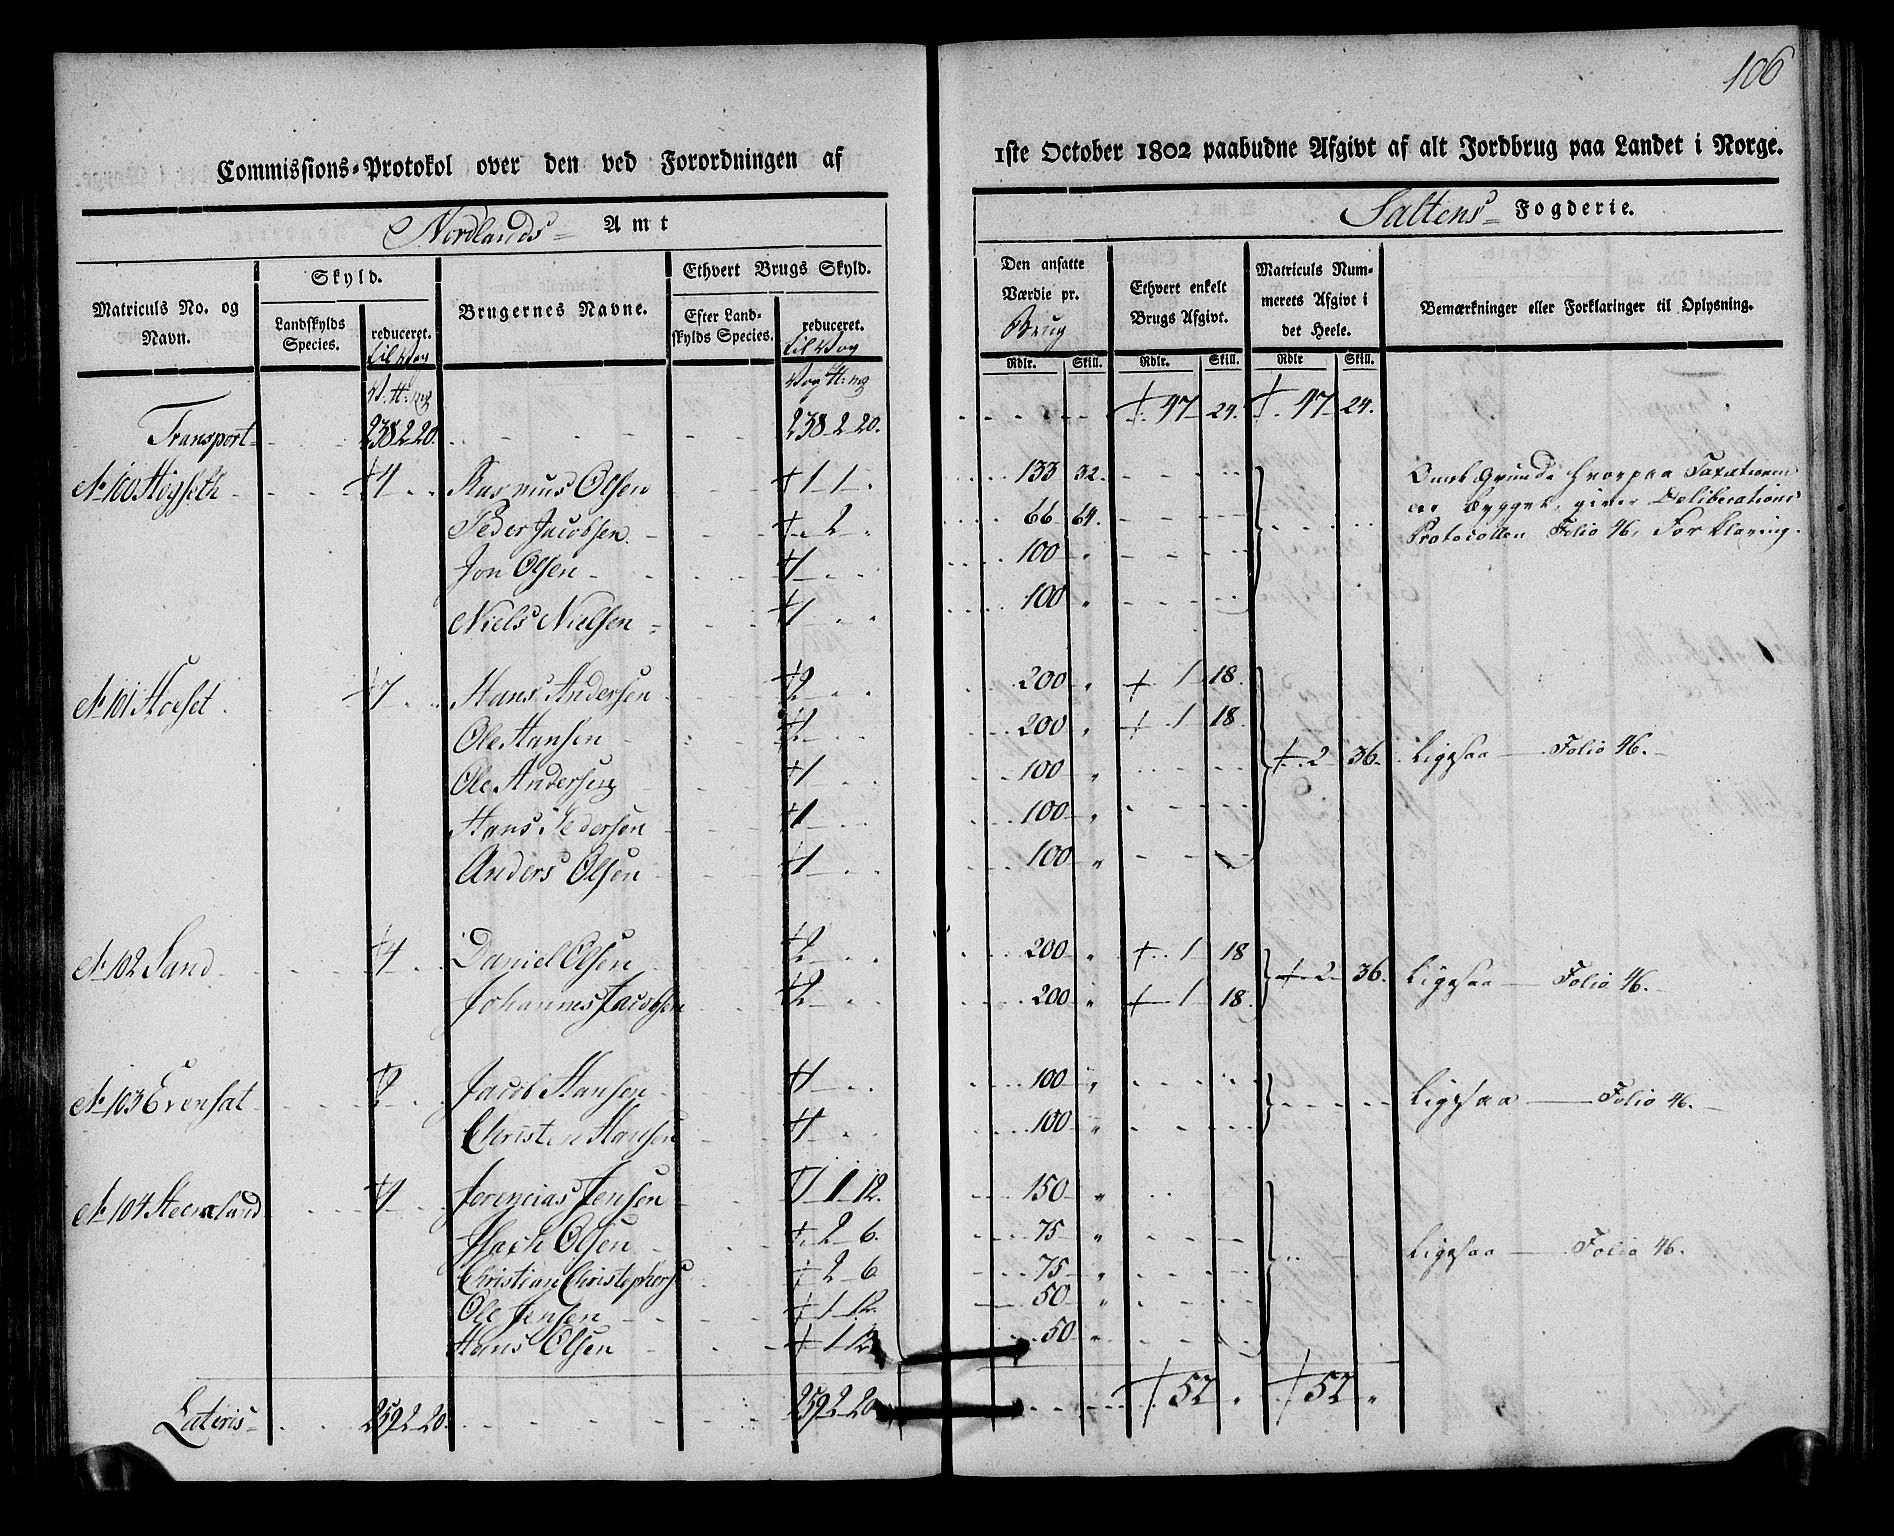 106
Commissions-Protokol over den ved Forordningen af 1ste October 1802 paabudne Afgivt af alt Jordbrug paa Landet i Norge.
Nordlands Amt Saltens Fogderie.
Matriculs No. og Navn. Skyld. Landskylds Species. reduceret. til Vog Brugernes Navne. Ethvert Brugs Skyld. Efter Landskylds Species. reduceret. til Vog
Den ansatte Værdie pr. Brug Ethvert enkelt Brugs Afgivt. Matriculs Nummerets Afgivt i det Heele. Bemærkninger eller Forklaringer til Oplysning.
Rdlr. Skill. Rdlr. Skill. Rdlr Skill.
Transport 238 2 20. 238 2 20. 47 24. 47 24.
No 100 Høgseth 4 Rasmus Olsen 1 1 133 32. Omst Grunde hvorpaa Taxationen
Peder Jacobsen. 2 66 64. er bygget, giver Deliberations
Jon Olsen 1 100 Protocollen Folio 46, Forklaring.
Niels Nielsen 1 100
No 101 Hoeset 7 Hans Andersen 2 200 1 18.
Ole Hansen 200 1 18
Ole Andersen 1 100 2 36. Ligesaa Folio 46.
Hans Pedersen 1 100
Anders Olsen 1 100
No 102 Sand 4 Daniel Olsen 2 200 1 18 2 36. Ligesaa Folio 46.
Johannes Jacobsen 2 200 1 18.
No 103 Evensat 2 Jacob Hansen 1 100 Ligesaa Folio 46.
Christen Hansen 1 100
No 104 Steensland 4 Jeremias Jensen 1 1 12. 150
Isach Olsen 2 6. 75 Ligesaa Folio 46.
Christian Christophers 2 6 75
Ole Jensen 1 12. 50
Hans Olsen 1 12 50
Lateris 259 2 20. 259 2 20 52 52